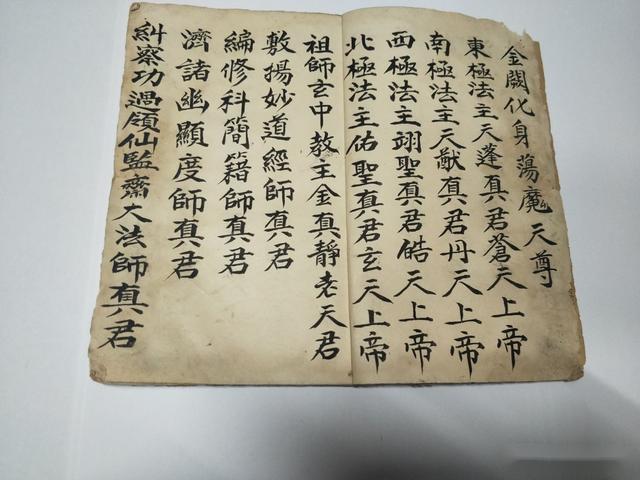 金闕化身蕩魔天尊
東極法主天蓬真君蒼天上帝
南極法主天猷真君丹天上帝
西極法主翊聖真君皓天上帝
北極法主佑聖真君玄天上帝
祖師玄中教主金真靜老天君
敷揚妙道經師真君
編修科簡籍師真君
濟諸幽顯度師真君
糾察功過領仙監齋大法師真君